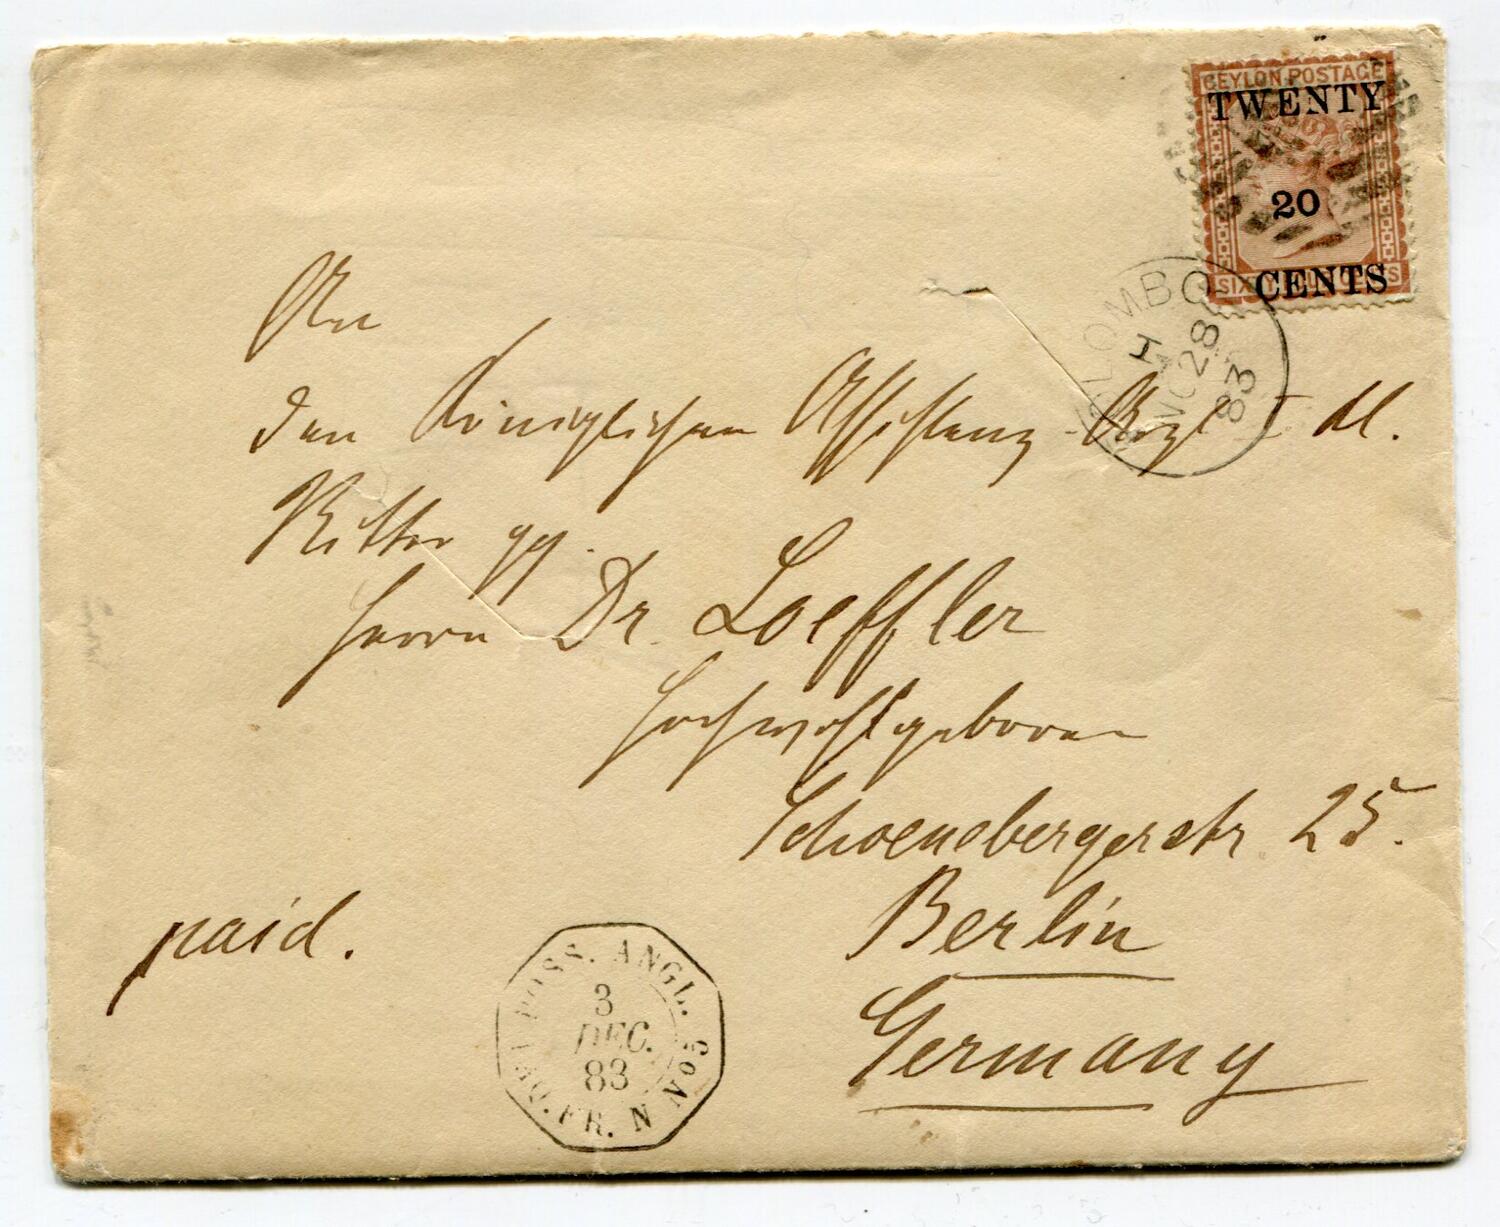 CEYLON POSTAGE
TWENTY
20
CENTS
SIXTY
COLOMBO
H
28
83
An
den Königlichen Assistenz-Arzt I Kl.
Ritter pp.
Herrn Dr. Loeffler
Hochwohlgeboren
Schoenebergerstr 25.
Berlin
Germany
paid.
POSS. ANGL.
3
DEC.
83
PAQ. FR. N No 5